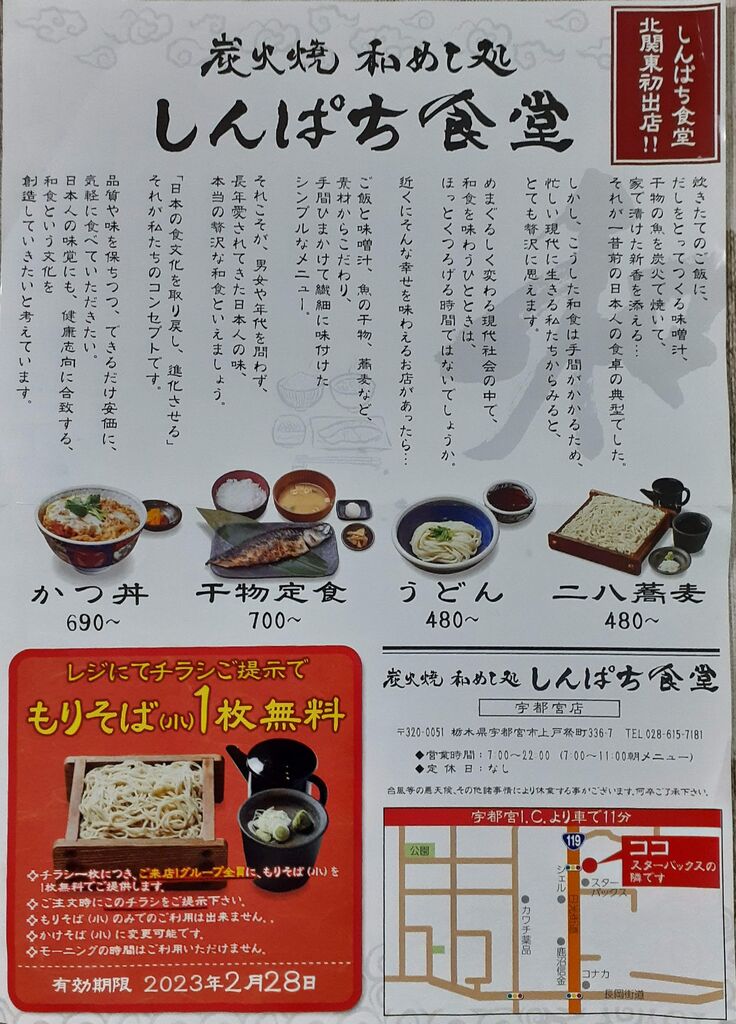 しんぱち食堂
北関東初出店!!
炭火焼 和めし処
しんぱち食堂
炊きたてのご飯に、
だしをとってつくる味噌汁、
干物の魚を炭火で焼いて、
家で漬けた新香を添える…
それが一昔前の日本人の食卓の典型でした。
しかし、こうした和食は手間がかかるため、
忙しい現代に生きる私たちからみると、
とても贅沢に思えます。
めまぐるしく変わる現代社会の中で、
和食を味わうひとときは、
ほっとくつろげる時間ではないでしょうか。
近くにそんな幸せを味わえるお店があったら…
ご飯と味噌汁、魚の干物、蕎麦など、
素材からこだわり、
手間ひまかけて繊細に味付けた
シンプルなメニュー。
それこそが、男女や年代を問わず、
長年愛されてきた日本人の味、
本当の贅沢な和食といえましょう。
「日本の食文化を取り戻し、進化させる」
それが私たちのコンセプトです。
品質や味を保ちつつ、できるだけ安価に、
気軽に食べていただきたい。
日本人の味覚にも、健康志向に合致する、
和食という文化を
創造していきたいと考えています。
かつ丼
690～
干物定食
700～
うどん
480～
二八蕎麦
480～
レジにてチラシご提示で
もりそば(小)1枚無料
❖チラシ一枚につき、ご来店1グループ全員に、もりそば(小)を
1枚無料でご提供します。
❖ご注文時にこのチラシをご提示下さい。
❖もりそば(小)のみでのご利用は出来ません。
❖かけそば(小)に変更可能です。
❖モーニングの時間はご利用いただけません。
有効期限 2023年2月28日
炭火焼 和めし処 しんぱち食堂
宇都宮店
〒320-0051 栃木県宇都宮市上戸祭町336-7 TEL 028-615-7181
◆営業時間：7:00～22:00 (7:00～11:00朝メニュー)
◆定休日：なし
台風等の悪天候、その他諸事情により休業する事がございます。何卒ご了承下さい。
宇都宮I.C.より車で11分
公園
119
ココ
スターバックスの
隣です
シェル
スター
バックス
カワチ薬品
鹿沼信金
コナカ
長岡街道